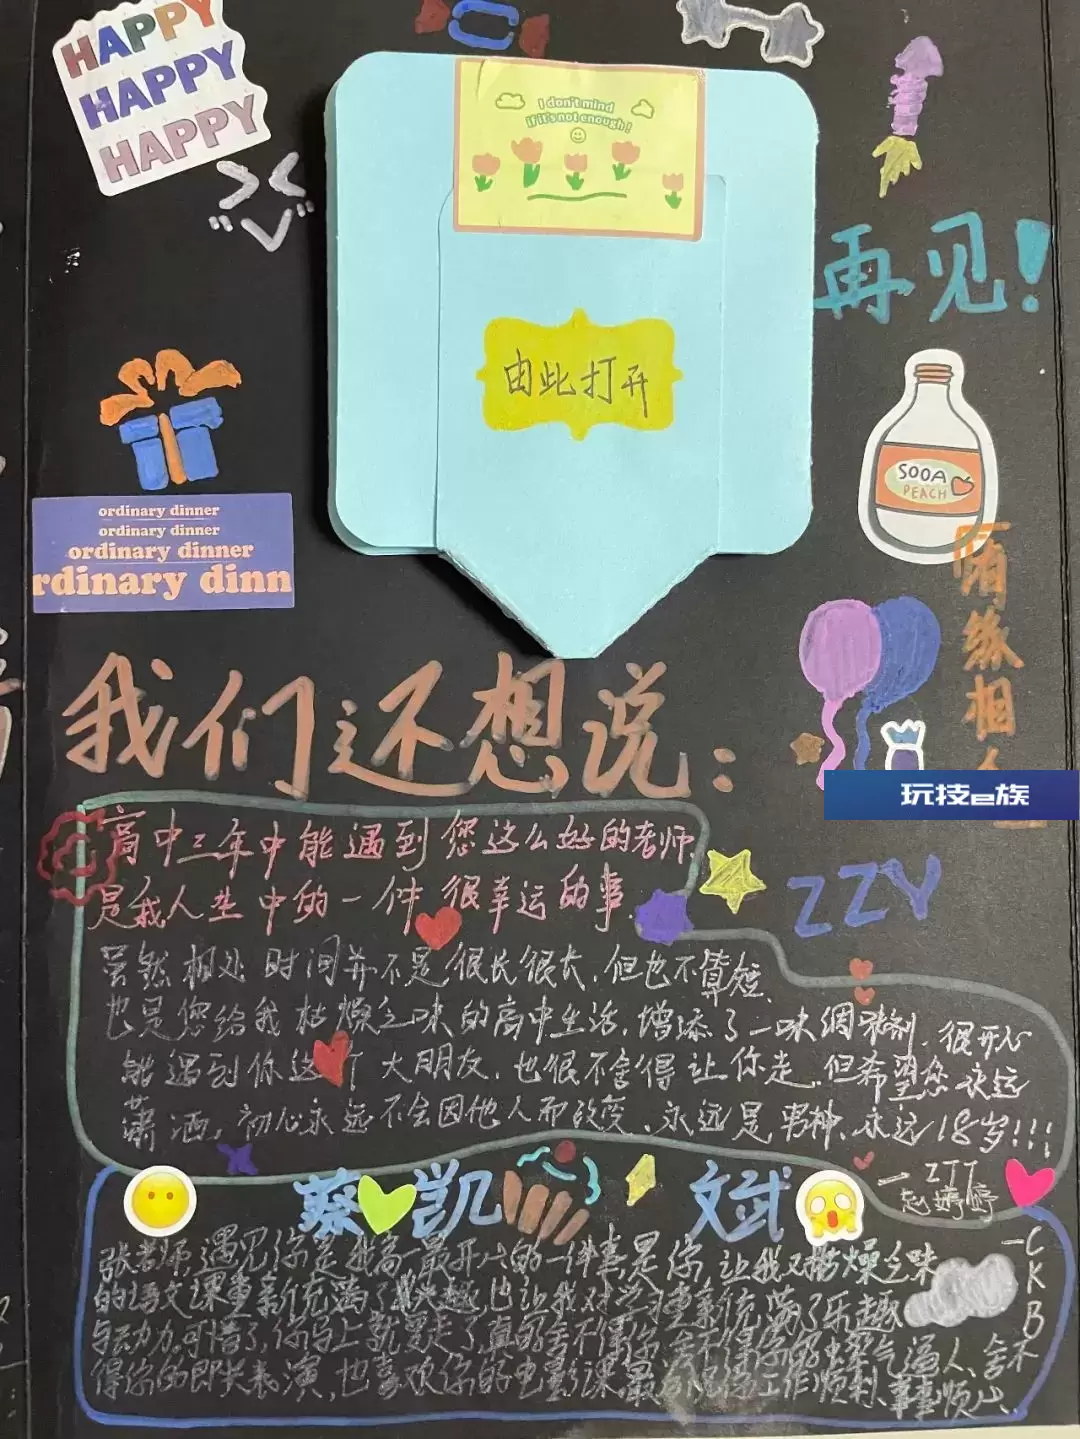 HAPPY
HAPPY
HAPPY
I don't mind
if it's not enough!
再见!
由此打开
SOOA
PEACH
ordinary dinner
ordinary dinner
ordinary dinner
rdinary dinn
陌缘相
我们还想说:
玩技e族
高中三年中能遇到您这么好的老师.
是我人生中的一件很幸运的事.
ZZY
虽然相处时间并不是很长很长.但也不算短.
也是您给我枯燥乏味的高中生活.增添了一味调剂.很开心
能遇到你这个大朋友.也很不舍得让你走.但希望您永远
萧洒,初心永远不会因他人而改变.永远是男神.永远18岁!!!
蔡凯 文斌
赵婷婷
张老师,遇见你是我高一最开心的一件事,是你,让我又枯燥乏味
的语文课重新充满了快趣,也让我对学习重新充满了乐趣
与动力.可惜了,你马上就要走了,真的舍不得你
得你的即兴表演,也喜欢你的电影课,最后祝你工作顺利,事事顺心.
一CKB